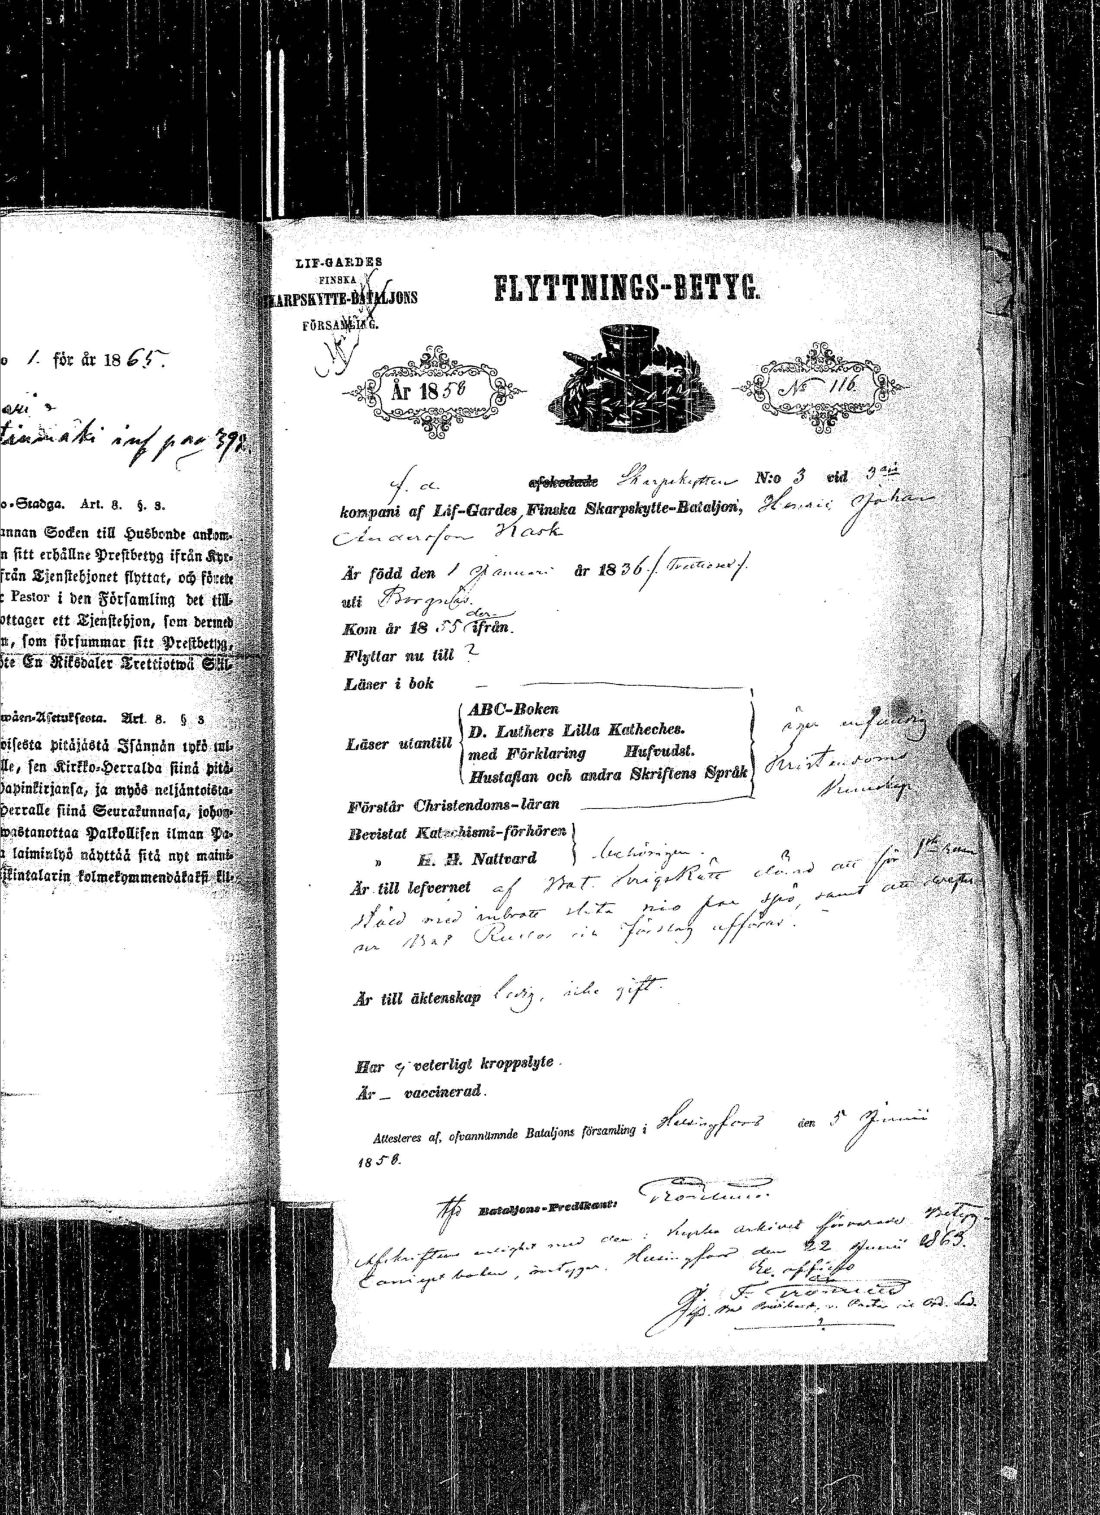 o 1. för år 1865.
inf pag 392.
o-Stadga. Art. 8. §. 8.
annan Socken till Husbonde ankom-
n sitt erhållne Prestbetyg ifrån Kyr-
från Tjenstehjonet flyttat, och förete
Pastor i den Församling det till-
ottager ett Tjenstehjon, som dermed
n, som försummar sitt Prestbetyg,
öte En Riksdaler Trettiotwå Skil-
wäen-Asetuksesta. Art. 8. § 8
oisesta pitäjästä Isännän tykö tul-
lle, sen Kirkko-Herralda siinä pitä-
papinkirjansa, ja myös neljäntoista-
Herralle siinä Seurakunnasa, johon-
wastanottaa Palkollisen ilman Pa-
laiminlyö näyttää sitä nyt maini-
ikintalarin kolmekymmendäkaksi kil-
LIF-GARDES
FINSKA
SKARPSKYTTE-BATALJONS
FÖRSAMLING.
FLYTTNINGS-BETYG.
År 1858
No 116
f. d. afskedade Skarpskytten N:o 3 vid 3dje
kompani af Lif-Gardes Finska Skarpskytte-Bataljon, Henric Johan
Andersson Kask
Är född den 1 Januari år 1836 /. Trettiosex /.
uti Borgnäs.
Kom år 1855 derifrån.
Flyttar nu till ?
Läser i bok —
Läser utantill
ABC-Boken
D. Luthers Lilla Katheches.
med Förklaring Hufvudst.
Hustaflan och andra Skriftens Språk
äger enfaldig
Kristendoms
Kunskap
Förstår Christendoms-läran
Bevistat Katechismi-förhören
" H. H. Nattvard
behörigen.
Är till lefvernet af Bat. Krigsrätt dömd att för 1sta resan
stöld med inbrott slita nio par spö, samt att derefter
ur Bat. Rullor på förslag afföras.
Är till äktenskap ledig, icke gift.
Har ej veterligt kroppslyte.
Är — vaccinerad.
Attesteres af, ofvannämnde Bataljons församling i Helsingfors den 5 Junii
1858.
Bataljons-Predikant:
Afskriftens enlighet med den i kyrko arkivet förvarade Betyg-
Concept boken, intygar. Helsingfors den 22 Junii 1863.
Ex officio
F.